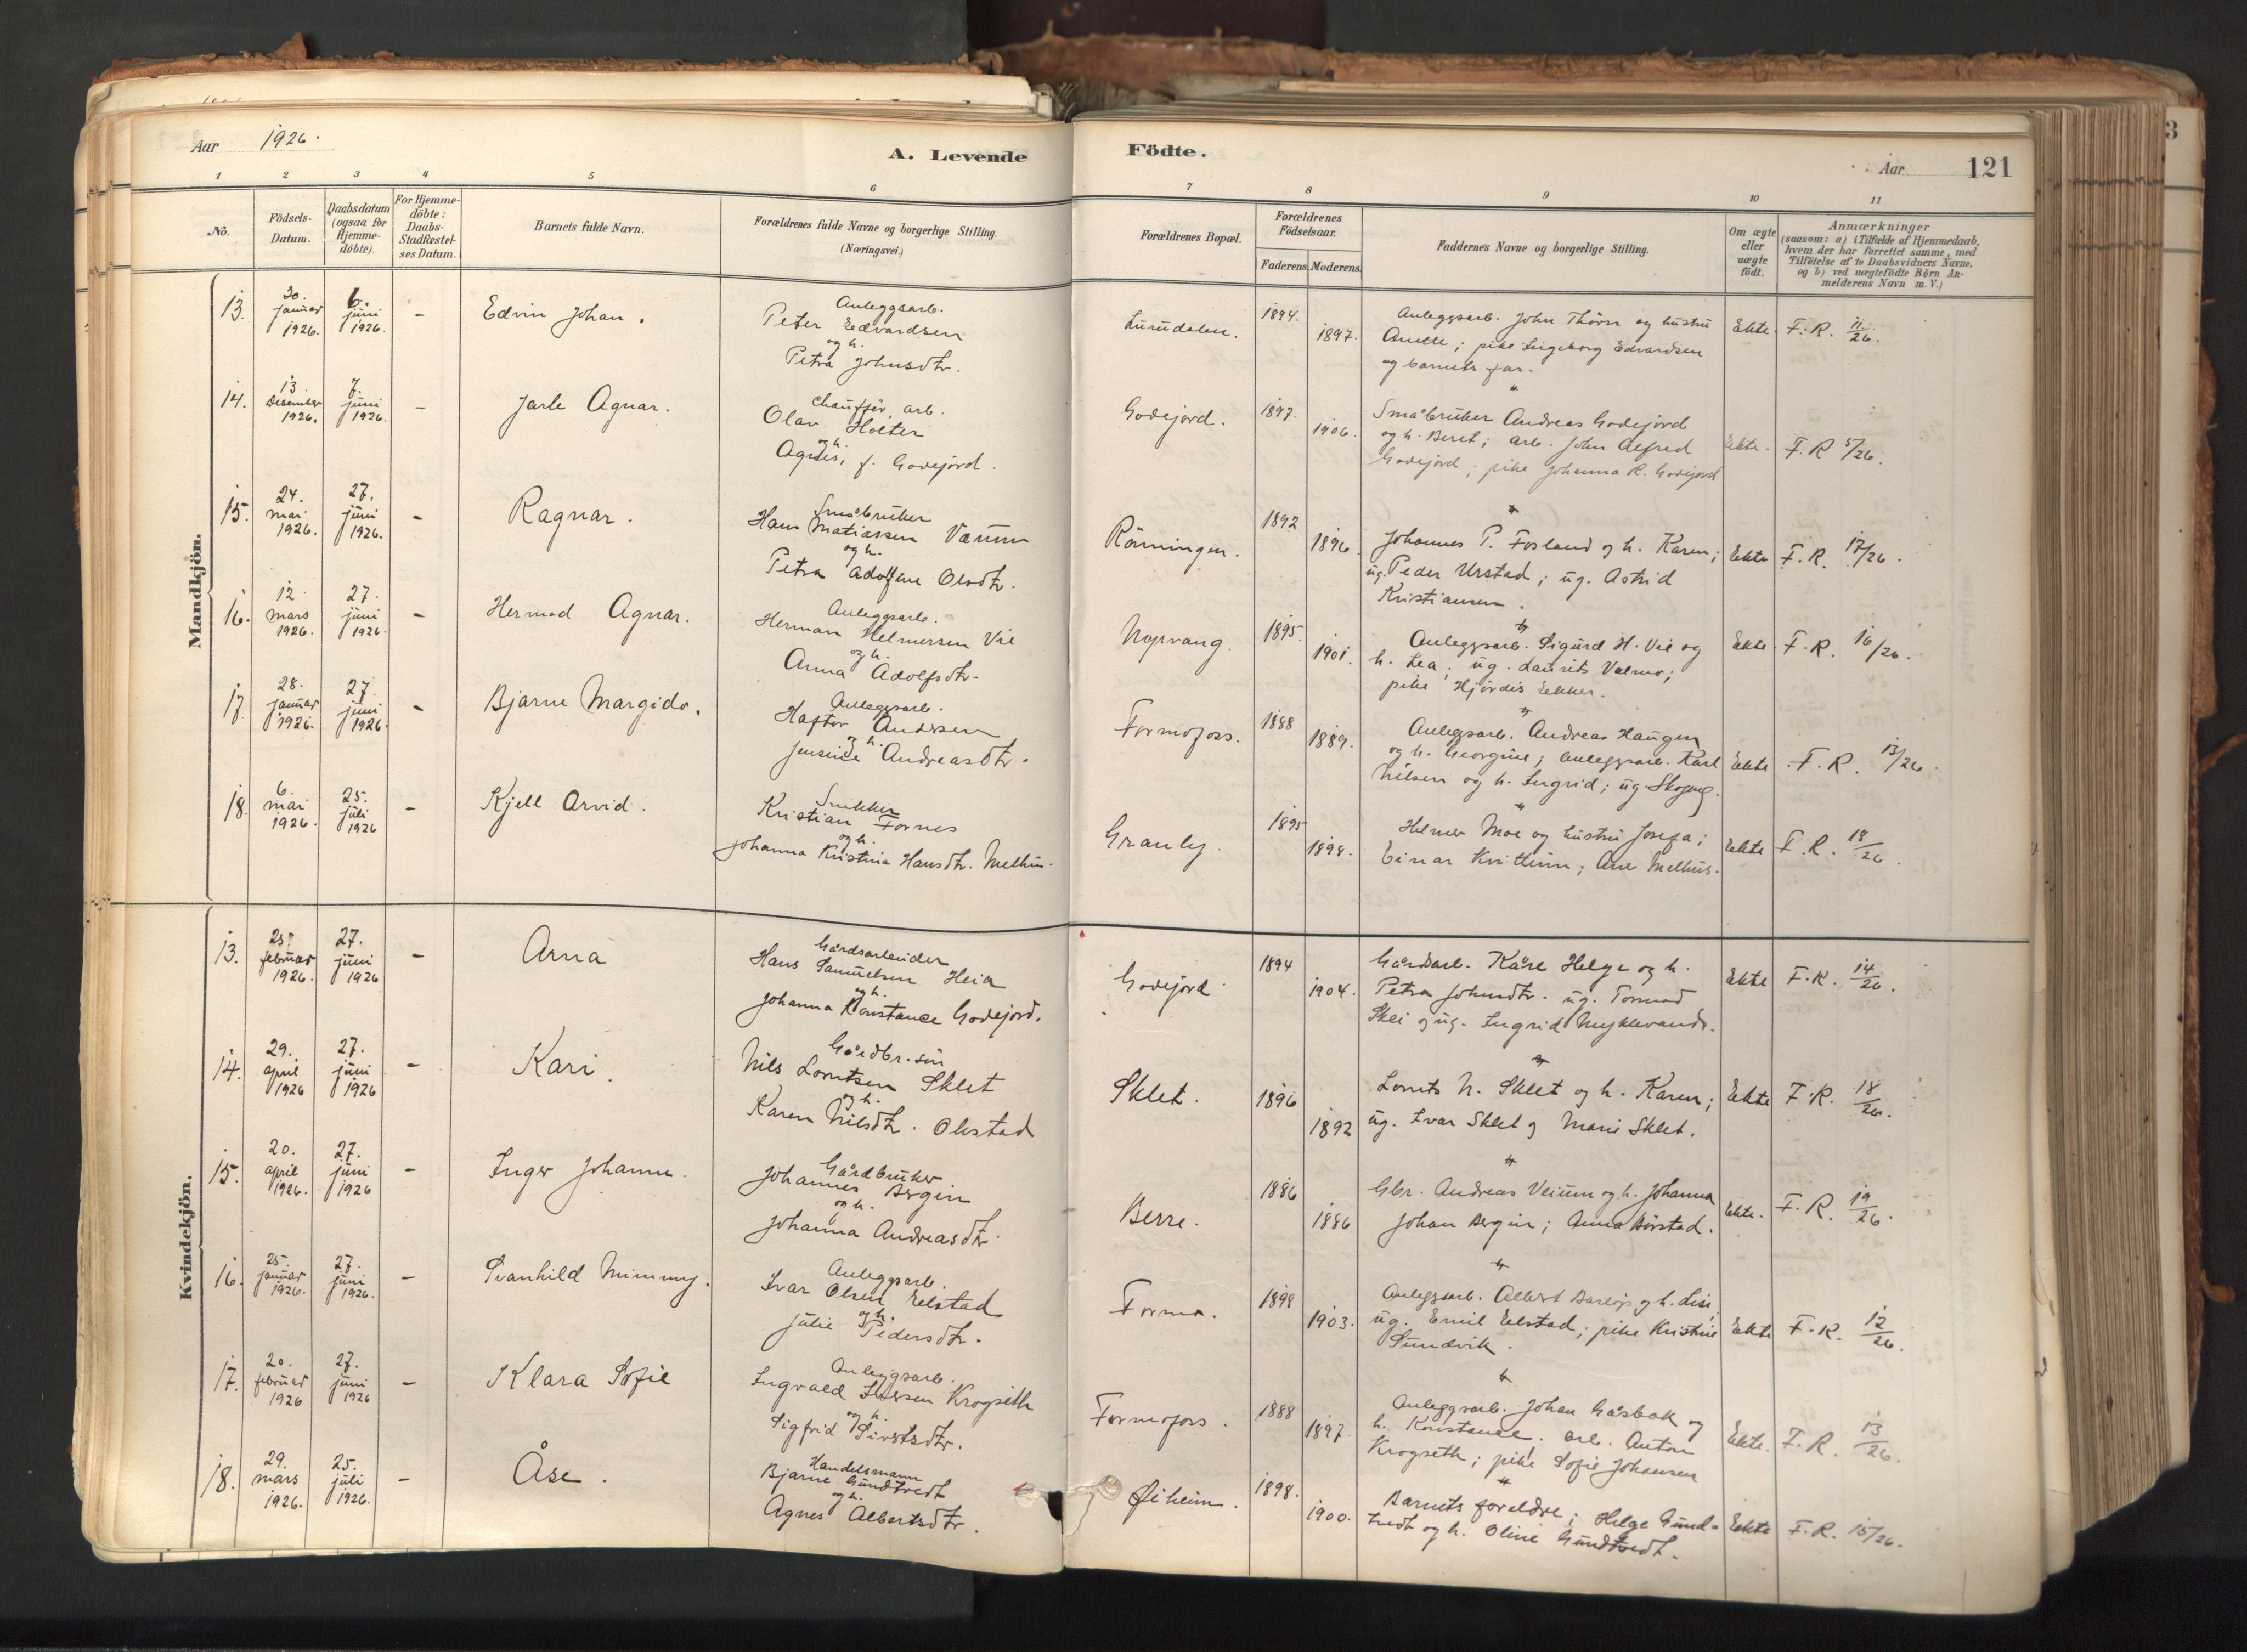 Aar 1926.
A. Levende
Födte.
Aar
121
1 2 3 4 5 6 7 8 9 10 11
No.
Födsels-
Datum.
Daabsdatum
(ogsaa for
Hjemme-
döbte).
For Hjemme-
döbte:
Daabs-
Stadfæstel-
ses Datum.
Barnets fulde Navn.
Forældrenes fulde Navne og borgerlige Stilling.
(Næringsvei.)
Forældrenes Bopæl.
Forældrenes
Födselsaar.
Faderens Moderens.
Faddernes Navne og borgerlige Stilling.
Om ægte
eller
uægte
födt.
Anmærkninger
(saasom: a) i Tilfælde af Hjemmedaab,
hvem der har forrettet samme, med
Tilföielse af to Daabsvidners Navne.
og b) ved uægtefödte Börn An-
melderens Navn m. V.)
Mandkjön.
13.
30.
januar
1926.
6.
juni
1926.
-
Edvin Johan.
Anleggsarb.
Peter Edvardsen
og h.
Petra Johnsdtr.
Lurudalen.
1894.
1897.
Anleggsarb. John Thörn og hustru
Anette; pike Ingeborg Edvardsen
og barnets far.
Ekte.
F.R. 11/26.
14.
13.
desember
1926.
7.
juni
1926.
-
Jarle Agnar.
Chauffør, arb.
Olav Holter
og h.
Agnes, f. Godejord.
Godejord.
1897.
1906.
"
Småbruker Andreas Godejord
og h. Beret; arb. John Alfred
Godejord; pike Johanna R. Godejord
Ekte.
F.R 5/26.
15.
24.
mai
1926.
27.
juni
1926.
-
Ragnar.
Småbruker
Hans Matiassen Værum
og h.
Petra Adolfine Olsdtr.
Rönningen.
1892
1896.
"
Johannes P. Fosland og h. Karen;
ug. Peder Urstad; ug. Astrid
Kristiansen.
Ekte
F.R. 17/26.
16.
12.
mars
1926.
27.
juni
1926.
-
Hermod Agnar.
Anleggsarb.
Herman Helmersen Vie
og h.
Anna Adolfsdtr.
Nopvang.
1895.
1901.
"
Anleggsarb. Sigurd H. Vie og
h. Lea; ug. Laurits Valmo;
pike Hjördis Ekker.
Ekte.
F.R. 16/26.
17.
28.
januar
1926.
27.
juni
1926.
-
Bjarne Margido.
Anleggsarb.
Haftor Andersen
og h.
Jensine Andreasdtr.
Formofoss.
1888
1889.
"
Anleggsarb. Andreas Haugen
og h. Georgine; anleggsarb. Karl
Nilsen og h. Ingrid; ug
Ekte
F.R. 13/26.
18.
6.
mai
1926.
25.
juli
1926
-
Kjell Arvid.
Snekker
Kristian Fornes
og h.
Johanna Kristina Hansdtr. Melhus.
Granly.
1895
1898.
"
Helmer Moe og hustru Josefa;
Einar Kvittum; Are Melhus.
Ekte
F.R. 18/26.
Kvindekjön.
13.
25.
februar
1926.
27.
juni
1926
-
Arna
Gårdsarbeider
Hans Samuelsen Heia
og h.
Johanna Konstance Godejord.
Godejord
1894
1904.
Gårdsarb. Kåre Helge og h.
Petra Johnsdtr. ug. Tormod
Skei og ug. Ingrid Myklevand.
Ekte
F.R. 14/26.
14.
29.
april
1926
27.
juni
1926
-
Kari.
Gårdbr. sön
Nils Lorntsen Sklet
og h.
Karen Nilsdtr. Olestad
Sklet.
1896
1892
"
Lornts N. Sklet og h. Karen;
ug. Ivar Sklet og Marie Sklet.
Ekte
F.R. 18/26.
15.
20.
april
1926.
27.
juni
1926
-
Inger Johanne.
Gårdbruker
Johannes Bergin
og h.
Johanna Andreasdtr.
Berre.
1886
1886
"
Gbr. Andreas Veium og h. Johanna
Johan Bergin; Anna Börstad.
Ekte.
F.R. 19/26.
16.
25.
januar
1926.
27.
juni
1926.
-
Svanhild Mimmy.
Anleggsarb.
Ivar Olsen Eelstad
og h.
Julie Pedersdtr.
Formo.
1898
1903.
"
Anleggsarb. Albert Barlop og h. Lise;
ug. Emil Eelstad; pike Kristine
Sundvik.
Ekte
F.R. 12/26.
17.
20.
februar
1926
27.
juni
1926
-
Klara Sofie
Anleggsarb.
Ingvald Iversen Krogseth
og h.
Sigfrid Sivertsdtr.
Formofoss.
1888
1897.
"
Anleggsarb. Johan Gåsbak og
h. Konstance. arb. Anton
Krogseth; pike Sofie Johansen
Ekte.
F.R. 13/26.
18.
29.
mars
1926.
25.
juli
1926.
-
Åse.
Handelsmann
Bjarne Gundtvedt
og h.
Agnes Albertsdtr.
Øiheim.
1898.
1900.
"
Barnets foreldre; Helge Gund-
tvedt og h. Oline Gundtvedt.
Ekte
F.R. 15/26.